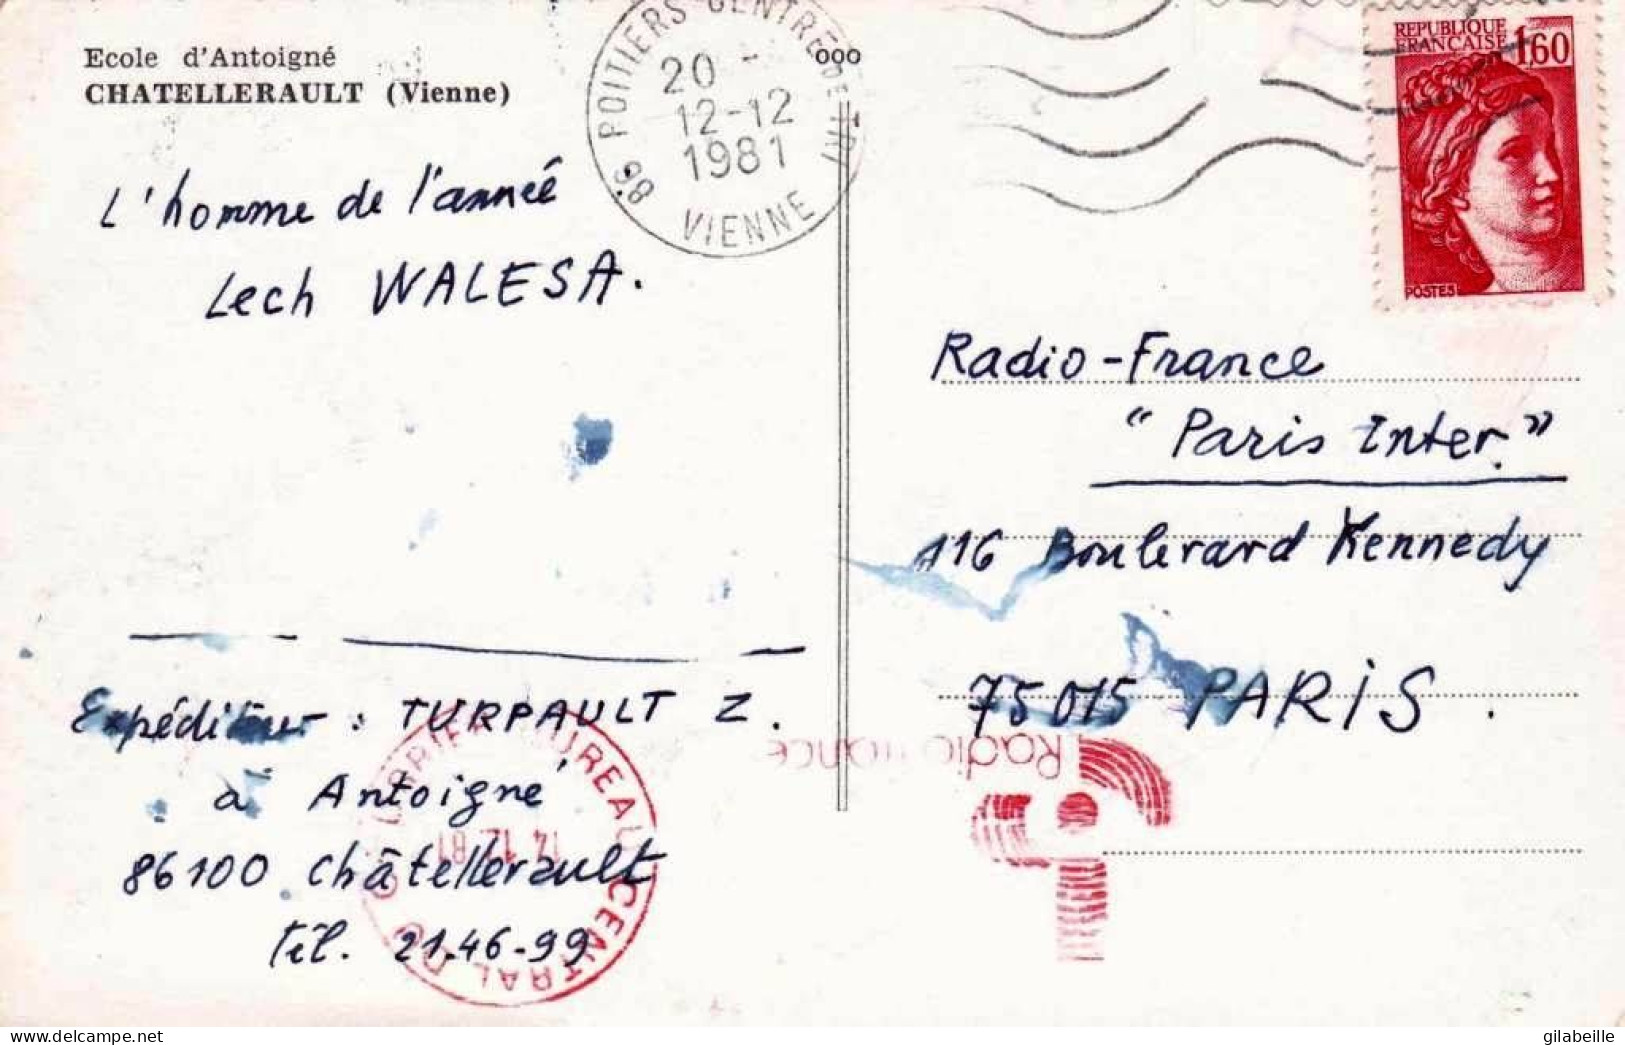 Ecole d'Antoigné
CHATELLERAULT (Vienne)
L'homme de l'année
Lech WALESA.
Expéditeur : TURPAULT Z.
à Antoigné
86100 Châtellerault
Tél. 21.46-99
86 POITIERS CENTRE DE TRI
20 -
12-12
1981
VIENNE
ooo
REPUBLIQUE
FRANCAISE 1,60
POSTES
Radio-France
"Paris Inter."
116 Boulevard Kennedy
75015 PARIS.
Radio France
BUREAU CENTRAL DU COURRIER
14.12.81
gilabeille